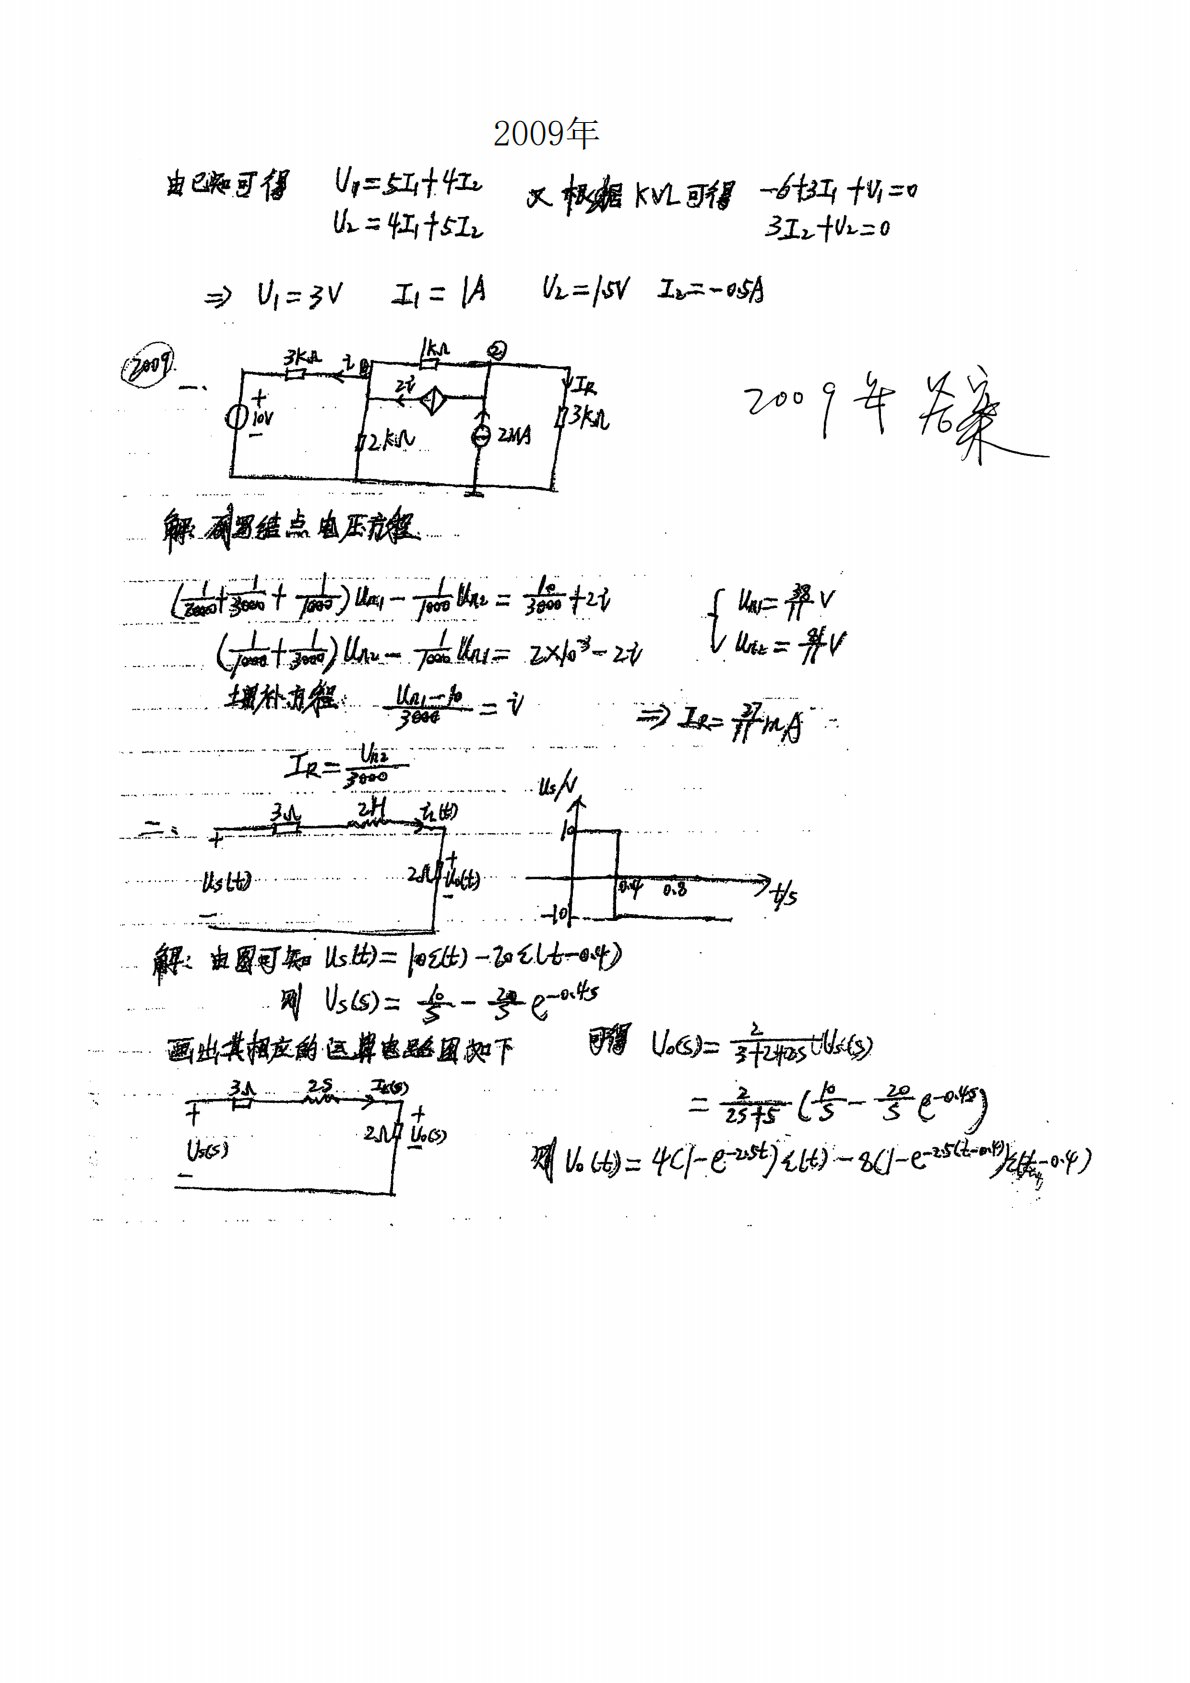 2009年
由已知可得 U₁=5I₁+4I₂ 又根据KVL可得 -6+3I₁+U₁=0
U₂=4I₁+5I₂ 3I₂+U₂=0
⇒ U₁=3V I₁=1A U₂=1.5V I₂=-0.5A
2009.
一、
3kΩ i ① 1kΩ ②
2i IR
+ 10V - 2kΩ 2mA 3kΩ
2009年答案
解: 列写结点电压方程
(1/2000+1/3000+1/1000)Un1-1/1000Un2=10/3000+2i
(1/1000+1/3000)Un2-1/1000Un1=2×10⁻³-2i
增补方程 (Un1-10)/3000=i
IR=Un2/3000
{ Un1=38/11V
Un2=81/11V
⇒ IR=27/11mA
二、
3Ω 2H iL(t)
+ Us(t) - 2Ω + Uo(t) -
Us/V
10
0.4 0.8 t/s
-10
解: 由图可知 Us(t)=10ε(t)-20ε(t-0.4)
则 Us(s)=10/s-20/s e^-0.4s
画出其相应的运算电路图如下
3Ω 2S IL(s)
+ Us(s) - 2Ω + Uo(s) -
可得 Uo(s)=2/(3+2+2s) Us(s)
=2/(2s+5)(10/s-20/s e^-0.4s)
则 Uo(t)=4(1-e^-2.5t)ε(t)-8(1-e^-2.5(t-0.4))ε(t-0.4)